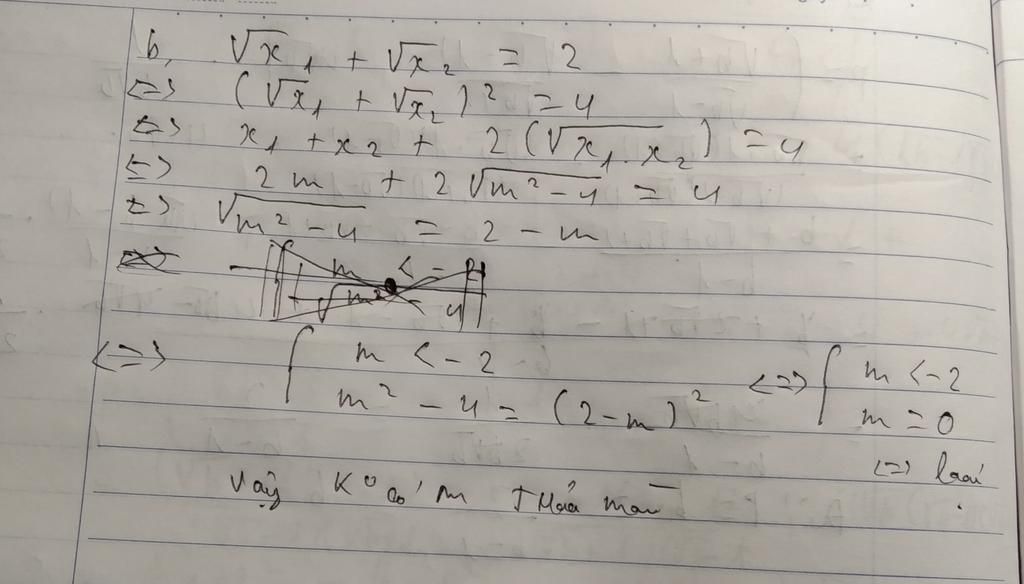 b, √x₁ + √x₂ = 2
<=> (√x₁ + √x₂)² = 4
<=> x₁ + x₂ + 2(√x₁.x₂) = 4
<=> 2m + 2√m² - 4 = 4
<=> √m² - 4 = 2 - m
<=> { m < -2 <=> { m < -2
m² - 4 = (2-m)² m = 0
<=> loại
Vậy K° có m Thoả mãn